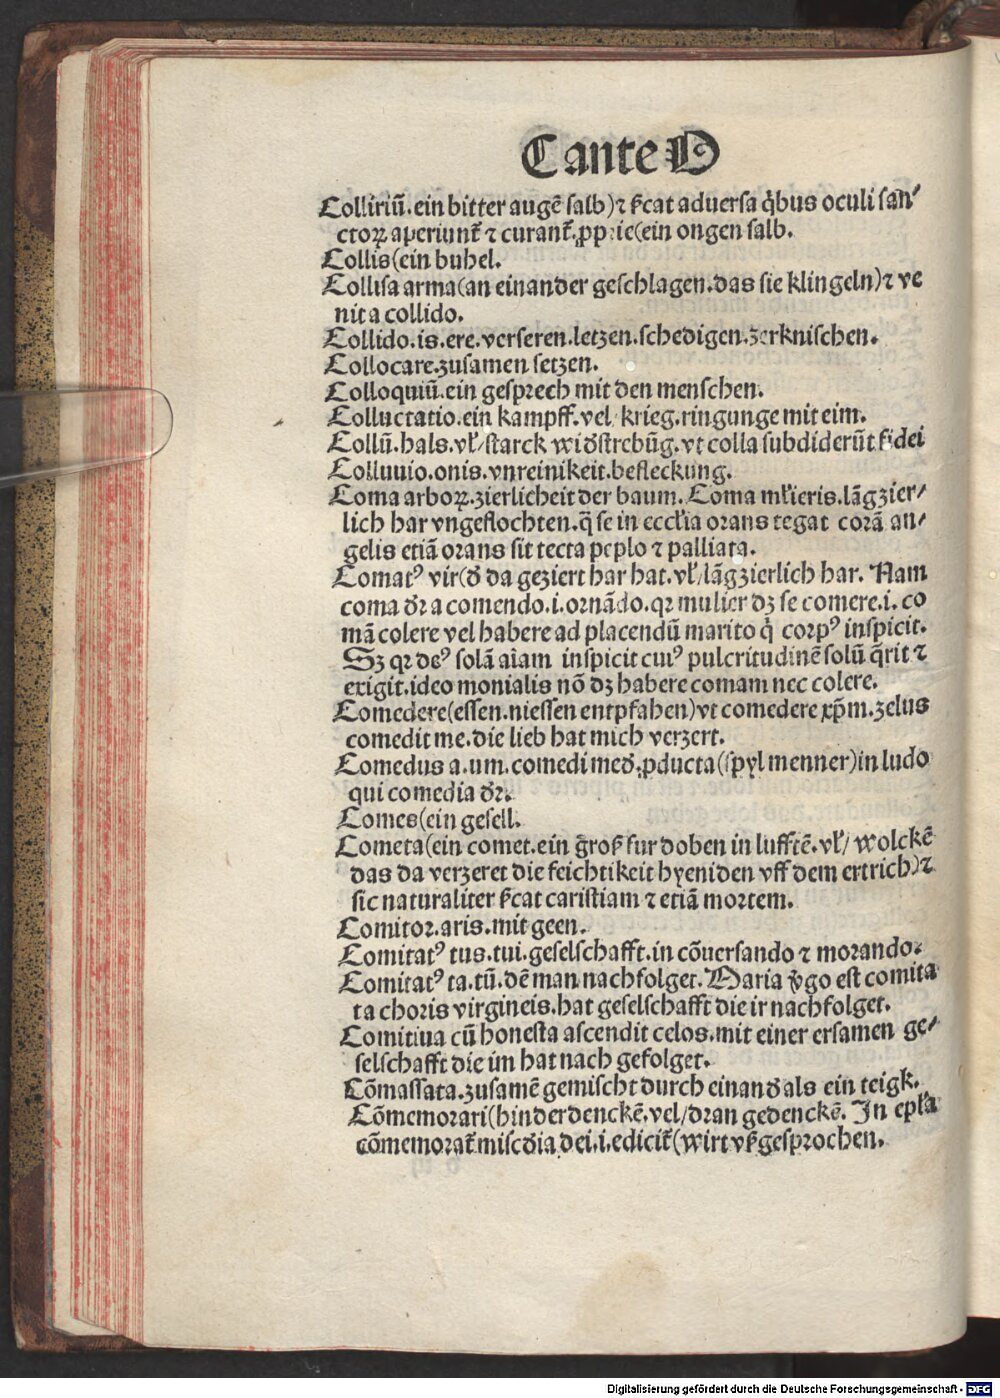 C ante O
Colliriū.ein bitter augē salb)⁊ ſ̄cat aduersa q̄bus oculi san⸗
ctoꝝ aperiunt̄ ⁊ curant̄.ꝓprie(ein ongen salb.
Collis(ein buhel.
Collisa arma(an einander geschlagen.das sie klingeln)⁊ ve
nit a collido.
Collido.is.ere.verseren.letzen.schedigen.zerknischen.
Collocare.zusamen setzen.
Colloquiū.ein gesprech mit den menschen.
Colluctatio.ein kampff.vel/krieg.ringunge mit eim.
Collū.hals.vl̄/starck wid̄strebūg.vt colla subdiderūt fidei
Colluuio.onis.vnreinikeit.befleckung.
Coma arboꝝ.zierlicheit der baum.Coma ml̄ieris.lāgzier⸗
lich har vngeflochten.q̄ se in eccl̄ia orans tegat corā an⸗
gelis etiā orans sit tecta peplo ⁊ palliata.
Comatꝰ vir(d̄ da geziert har hat.vl̄/lāgzierlich har. Nam
coma d̄r a comendo.i.ornādo.qꝛ mulier dꝫ se comere.i.co
mā colere vel habere ad placendū marito q̄ corpꝰ inspicit.
Sꝫ qꝛ deꝰ solā aīam inspicit cuiꝰ pulcritudinē solū q̄rit ⁊
exigit.ideo monialis nō dꝫ habere comam nec colere.
Comedere(essen.niessen entpfahen)vt comedere xp̄m.zelus
comedit me.die lieb hat mich verzert.
Comedus a.um.comedi med̄.ꝓducta(spyl menner)in ludo
qui comedia d̄r.
Comes(ein gesell.
Cometa(ein comet.ein groß fur doben in lufftē.vl̄/wolckē
das da verzeret die feichtikeit hyeniden vff dem ertrich)⁊
sic naturaliter ſ̄cat caristiam ⁊ etiā mortem.
Comitor.aris.mit geen.
Comitatꝰ tus.tui.geselschafft.in cōuersando ⁊ morando.
Comitatꝰ ta.tū.dē man nachfolget.Maria v̄go est comita
ta choris virgineis.hat geselschafft die ir nachfolget.
Comitiua cū honesta ascendit celos.mit einer ersamen ge⸗
selschafft die im hat nach gefolget.
Cōmassata.zusamē gemischt durch einand̄ als ein teigk.
Cōmemorari(hinderdenckē.vel/dran gedenckē. In epl̄a
cōmemorat̄ misc̄dia dei.i.edicit̄(wirt vß gesprochen.
Digitalisierung gefördert durch die Deutsche Forschungsgemeinschaft - DFG